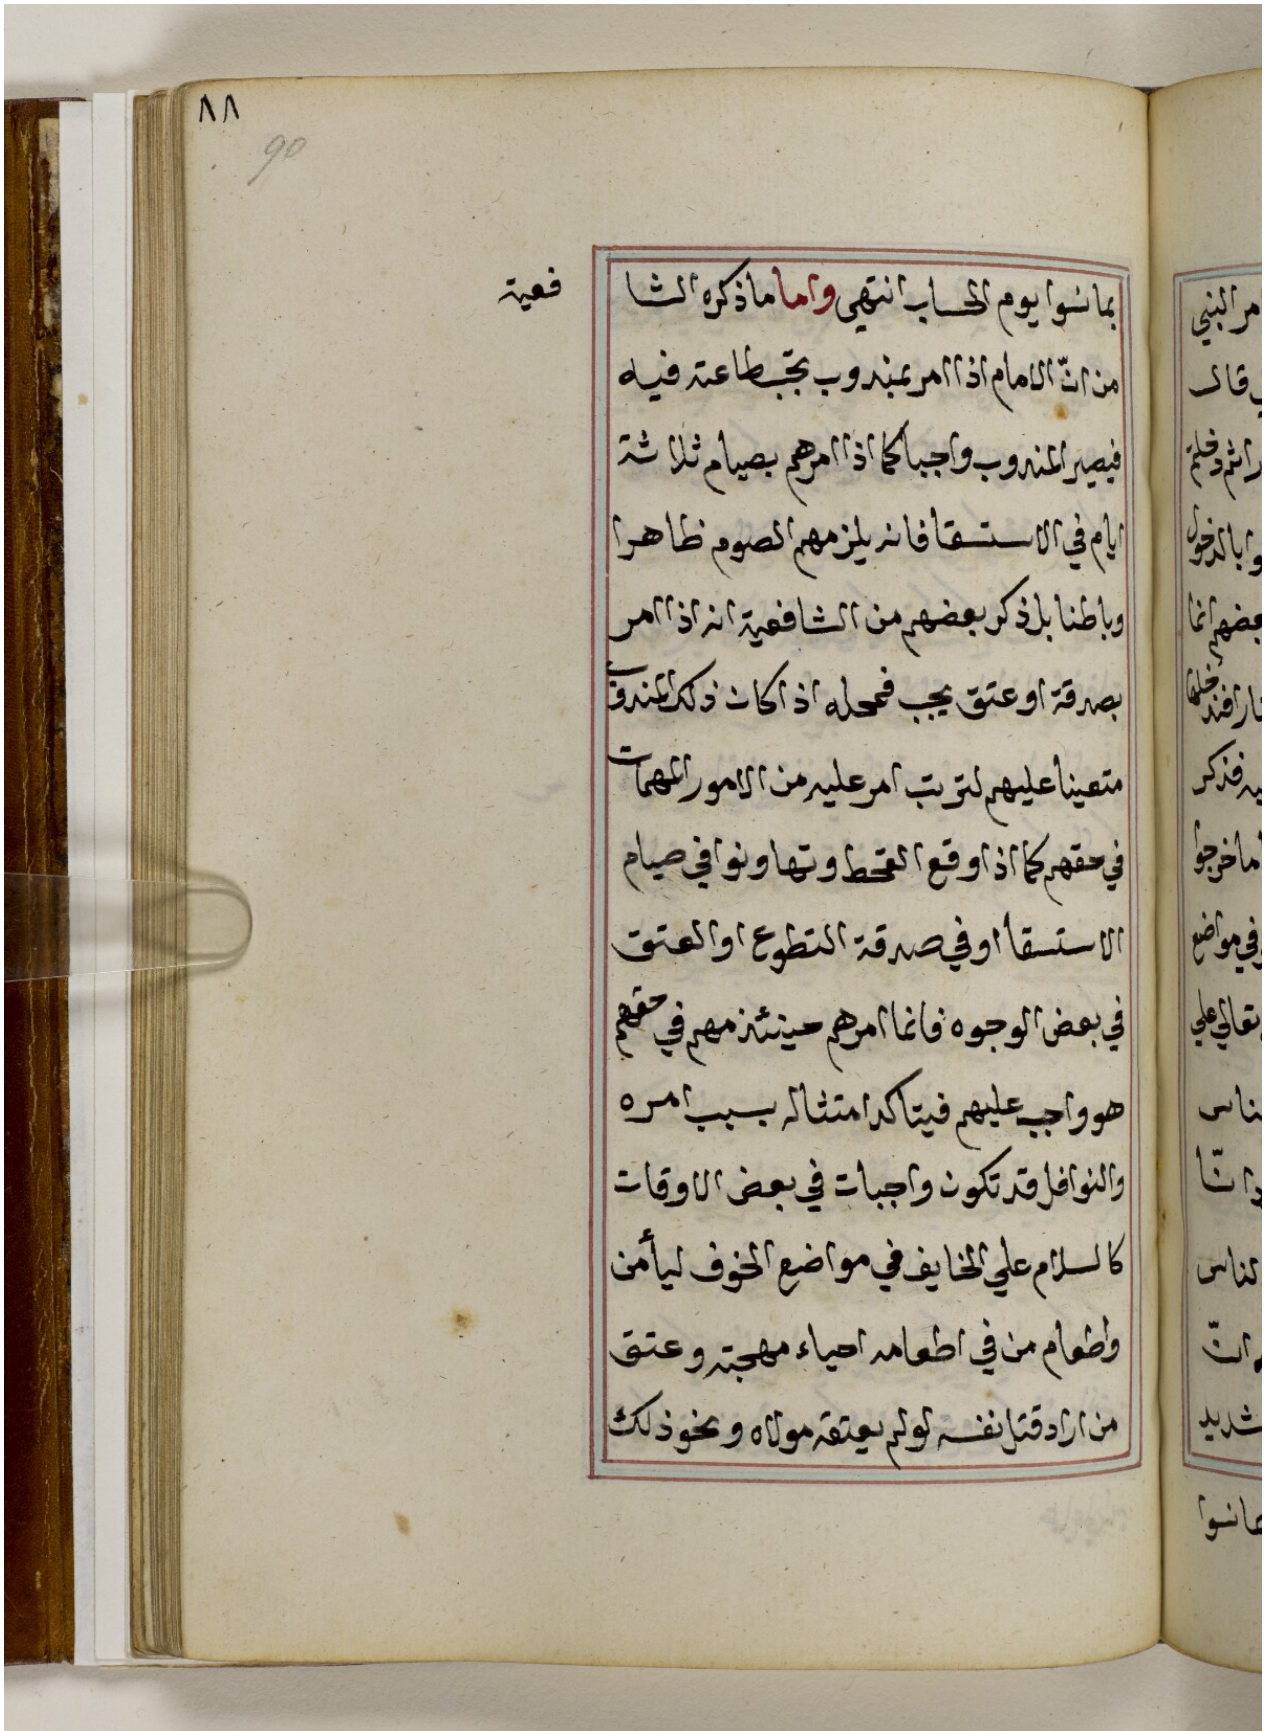 ٨٨
90
بما نسوا يوم الحساب انتهي واما ما ذكره الشا
فعية
من انّ الامام اذا امر بمندوب تجب طاعته فيه
فيصير المندوب واجبا كما اذا امرهم بصيام ثلاثة
ايام في الاستسقا فانه يلزمهم الصوم ظاهرا
وباطنا بل ذكر بعضهم من الشافعية انه اذا امر
بصدقة او عتق يجب فمحله اذا كان ذلك المندوب
متعينا عليهم لترتب امر عليه من الامور المهمات
في حقهم كما اذا وقع القحط وتهاونوا في صيام
الاستسقأ او في صدقة التطوع او العتق
في بعض الوجوه فانما امرهم حينئذ مهم في حقهم
هو واجب عليهم فيتاكد امتثاله بسبب امره
والنوافل قد تكون واجبات في بعض الاوقات
كالسلام علي الخايف في مواضع الخوف ليأمن
واطعام من في اطعامه احياء مهجته وعتق
من اراد قتل نفسه لو لم يعتقه مولاه ونحو ذلك
مر النبي
قال
وا بالدخول
بعضهم انما
فذكر
ما خرجوا
في مواضع
تعالي علي
الناس
انّ
شديد